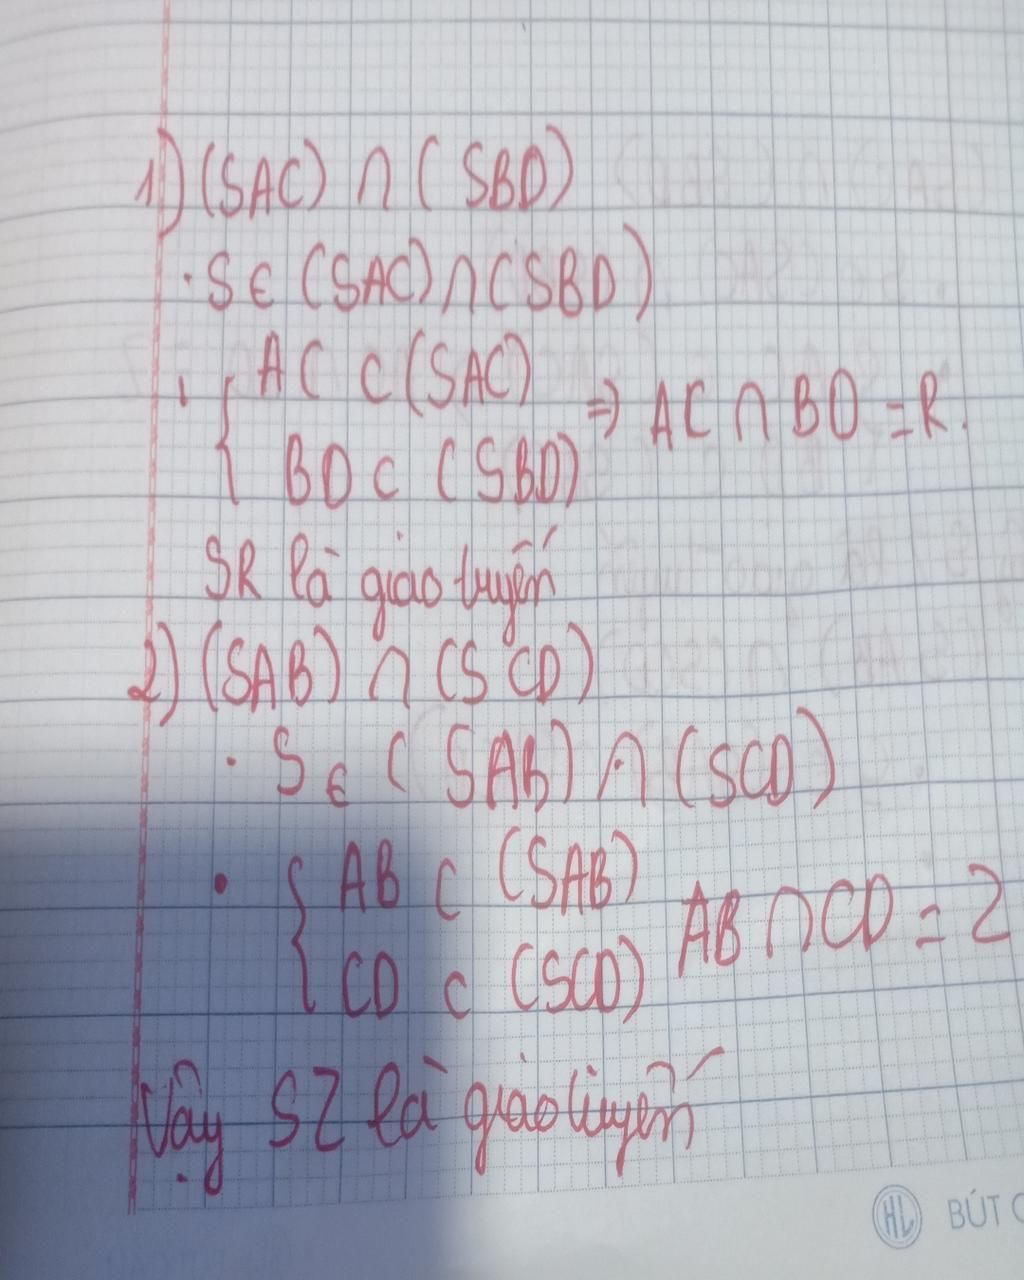 1) (SAC) ∩ ( SBD)
· S ∈ (SAC) ∩ (SBD)
· { AC ⊂ (SAC)
BD ⊂ (SBD) ⇒ AC ∩ BD = R.
SR là giao tuyến
2) (SAB) ∩ (SCD)
· S ∈ ( SAB) ∩ (SCD)
· { AB ⊂ (SAB)
CD ⊂ (SCD) AB ∩ CD = Z
Vậy SZ là giao tuyến
HL BÚT